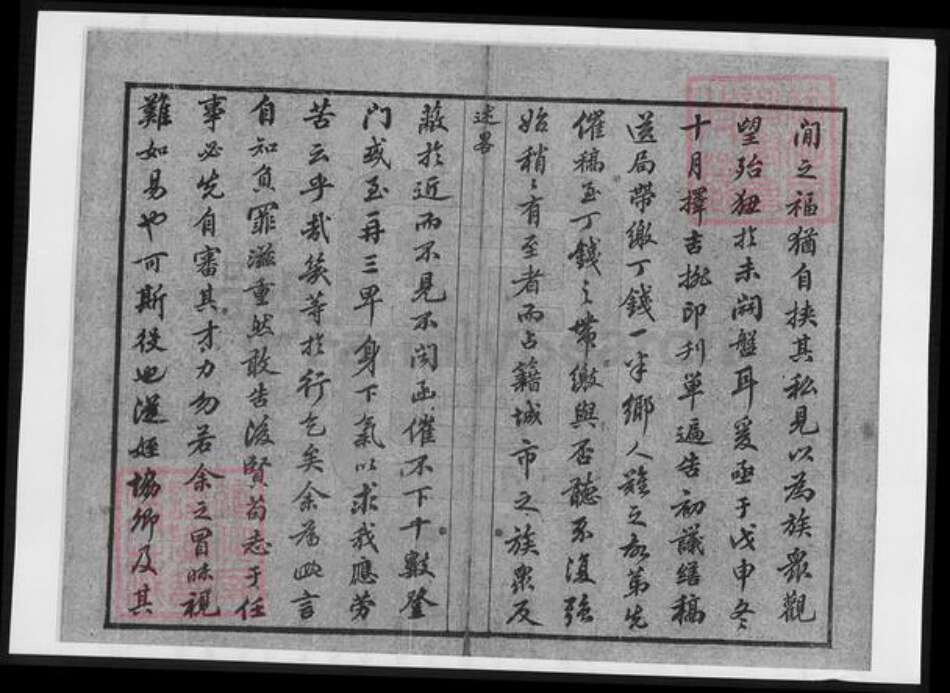 閒之福猶自挾其私見以為族衆觀
望殆狃於未開盤耳爰亟于戊申冬
十月擇吉挑印刋單遍告初議繕稿
送局帶繳丁錢一半鄉人難之敘第先
催稿至丁錢之帶繳與否聽不復強
始稍〻有至者而占籍城市之族衆反
述畧
蔽於近而不見不聞函催不下十數登
門或至再三卑身下氣以求哉應勞
苦云乎哉蓃等於行乞矣余為此言
自知負罪滋重然敢告後賢苟志于任
事必先自審其才力勿若余之冒昧視
難如易也可斯役也從姪協卿及其